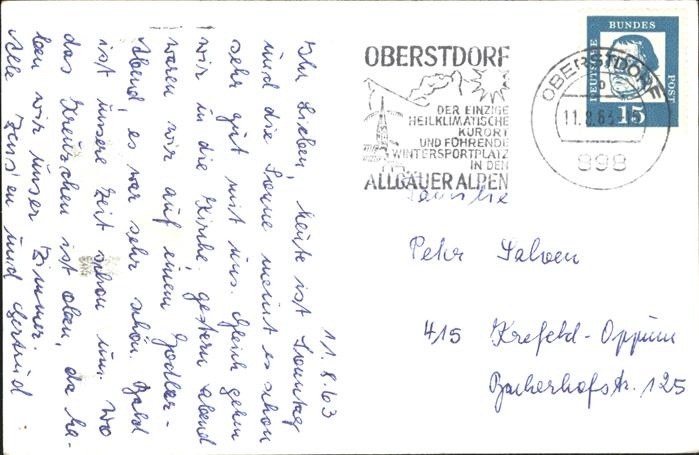 11.8.63
Ihr Lieben, heute ist Sonntag
und die Sonne meint es schon
sehr gut mit uns. Gleich gehen
wir in die Kirche, gestern abend
waren wir auf einem Jodler-
Abend, es war sehr schön. Bald
ist unsere Zeit schon um. Wo
das Kreuzchen ist oben, da ha-
ben wir unser Zimmer.
Alle und Gertrud
OBERSTDORF
DER EINZIGE
HEILKLIMATISCHE
KURORT
UND FÜHRENDE
WINTERSPORTPLATZ
IN DEN
ALLGÄUER ALPEN
OBERSTDORF
b
11.8.63
898
DEUTSCHE
BUNDES
POST
15
Familie
Peter
415 Krefeld-Oppum
Buscherhofstr. 125